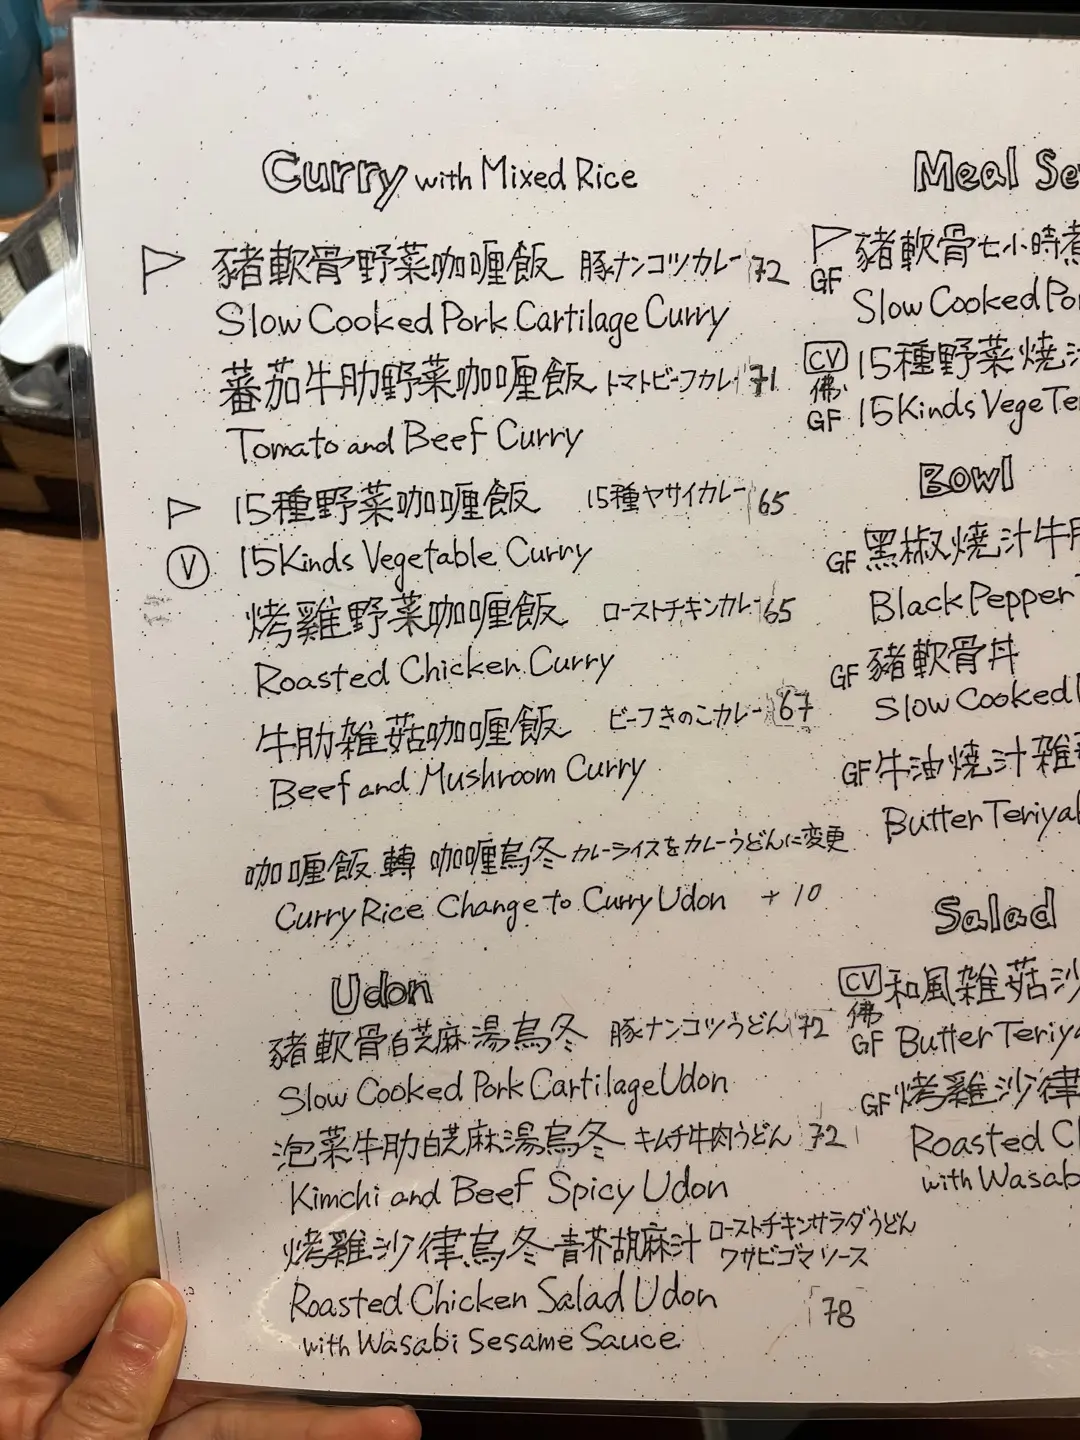 Curry with Mixed Rice
豬軟骨野菜咖喱飯 豚ナンコツカレー 72
Slow Cooked Pork Cartilage Curry
蕃茄牛肋野菜咖喱飯 トマトビーフカレー 71
Tomato and Beef Curry
15種野菜咖喱飯 15種ヤサイカレー 65
V 15Kinds Vegetable Curry
烤雞野菜咖喱飯 ローストチキンカレー 65
Roasted Chicken Curry
牛肋雑菇咖喱飯 ビーフきのこカレー 67
Beef and Mushroom Curry
咖喱飯 轉 咖喱烏冬 カレーライスをカレーうどんに変更
Curry Rice Change to Curry Udon +10
Udon
豬軟骨白芝麻湯烏冬 豚ナンコツうどん 72
Slow Cooked Pork Cartilage Udon
泡菜牛肋白芝麻湯烏冬 キムチ牛肉うどん 72
Kimchi and Beef Spicy Udon
烤雞沙律烏冬 青芥胡麻汁 ローストチキンサラダうどん
ワサビゴマソース
Roasted Chicken Salad Udon
with Wasabi Sesame Sauce 78
Meal Se
豬軟骨七小時煮
GF Slow Cooked Po
CV 15種野菜燒汁
佛
GF 15Kinds Vege Te
Bowl
GF 黑椒燒汁牛肋
Black Pepper
GF 豬軟骨丼
Slow Cooked
GF 牛油燒汁雑
Butter Teriyak
Salad
CV 和風雑菇沙
佛
GF Butter Teriya
GF 烤雞沙律
Roasted C
with Wasab